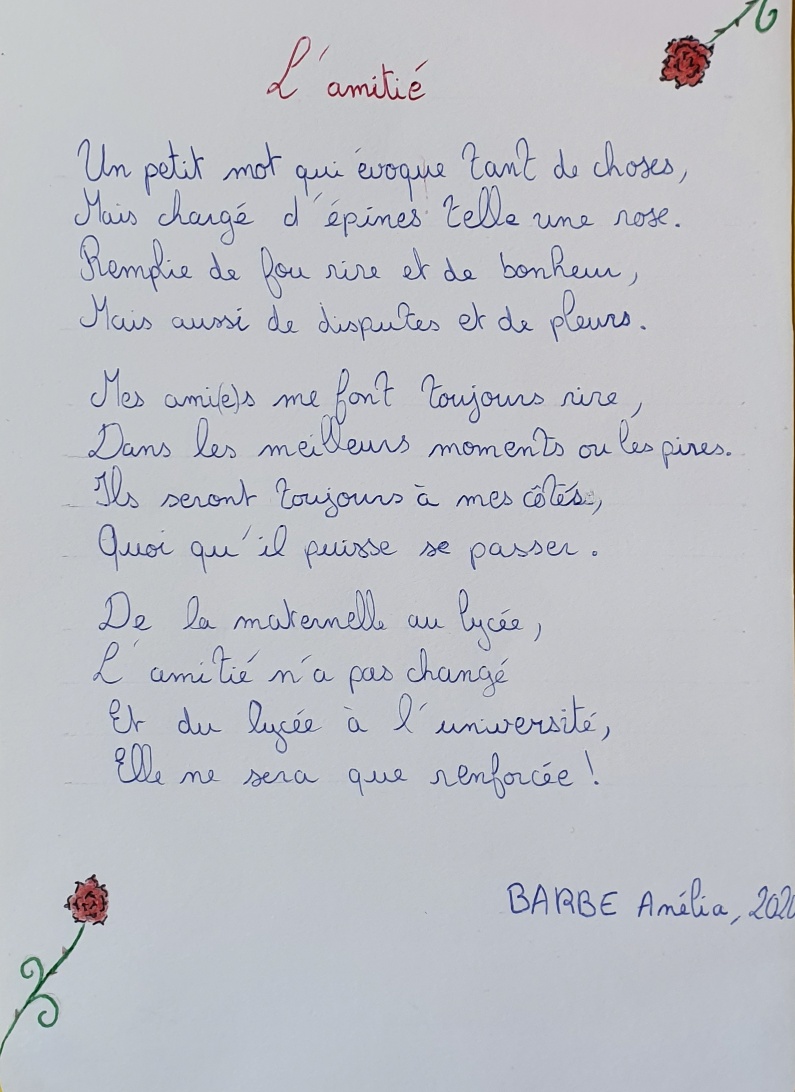 L'amitié
Un petit mot qui évoque tant de choses,
Mais chargé d'épines telle une rose.
Remplie de fou rire et de bonheur,
Mais aussi de disputes et de pleurs.
Mes ami(e)s me font toujours rire,
Dans les meilleurs moments ou les pires.
Ils seront toujours à mes côtés,
Quoi qu'il puisse se passer.
De la maternelle au lycée,
L'amitié n'a pas changé
Et du lycée à l'université,
Elle ne sera que renforcée !
BARBE Amélia, 2020